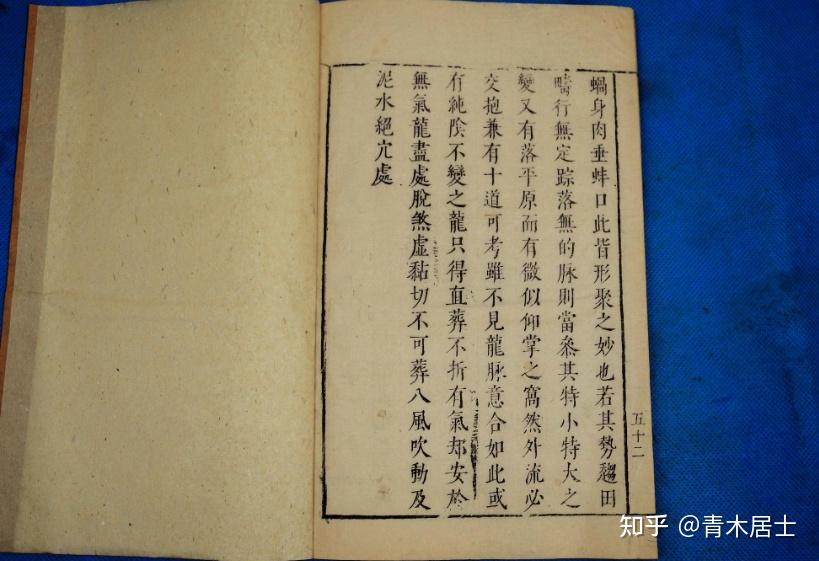 蝸身肉垂蚌口此皆形聚之妙也若其勢趨田
疇行無定踪落無的脉則當叅其特小特大之
變又有落平原而有微似仰掌之窩然外流必
交抱兼有十道可考雖不見龍脉意合如此或
有純陰不變之龍只得直葬不折有氣却安於
無氣龍盡處脫煞虛黏切不可葬八風吹動及
泥水絕亢處
五十二
知乎 @青木居士